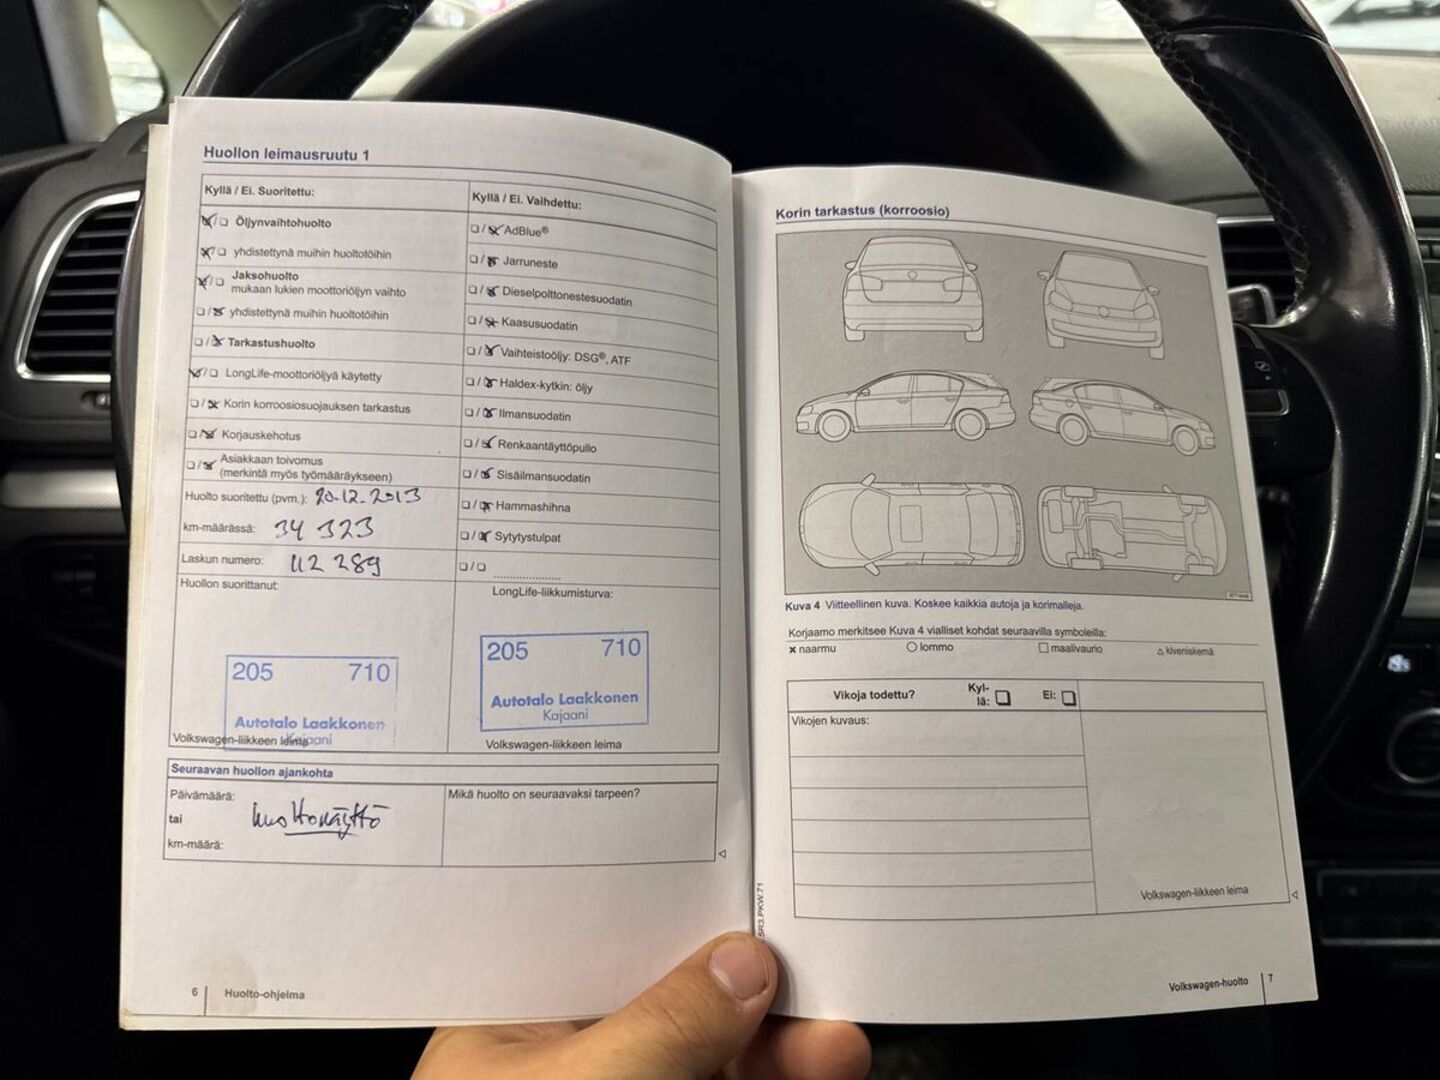 Huollon leimausruutu 1
Kyllä / Ei. Suoritettu:
Öljynvaihtohuolto
yhdistettynä muihin huoltotöihin
Jaksohuolto
mukaan lukien moottoriöljyn vaihto
yhdistettynä muihin huoltotöihin
Tarkastushuolto
LongLife-moottoriöljyä käytetty
Korin korroosiosuojauksen tarkastus
Korjauskehotus
Asiakkaan toivomus
(merkintä myös työmääräykseen)
Huolto suoritettu (pvm.): 20.12.2013
km-määrässä: 34 323
Laskun numero: 112 289
Huollon suorittanut:
205 710
Autotalo Laakkonen
Kajaani
Volkswagen-liikkeen leima
Kyllä / Ei. Vaihdettu:
AdBlue®
Jarruneste
Dieselpolttonestesuodatin
Kaasusuodatin
Vaihteistoöljy: DSG®, ATF
Haldex-kytkin: öljy
Ilmansuodatin
Renkaantäyttöpullo
Sisäilmansuodatin
Hammashihna
Sytytystulpat
LongLife-liikkumisturva:
205 710
Autotalo Laakkonen
Kajaani
Volkswagen-liikkeen leima
Seuraavan huollon ajankohta
Päivämäärä:
tai huoltonäyttö
km-määrä:
Mikä huolto on seuraavaksi tarpeen?
6 Huolto-ohjelma
Korin tarkastus (korroosio)
Kuva 4 Viitteellinen kuva. Koskee kaikkia autoja ja korimalleja.
Korjaamo merkitsee Kuva 4 vialliset kohdat seuraavilla symboleilla:
× naarmu ○ lommo □ maalivaurio △ kiveniskemä
Vikoja todettu? Kyl-
lä: Ei:
Vikojen kuvaus:
Volkswagen-liikkeen leima
Volkswagen-huolto 7